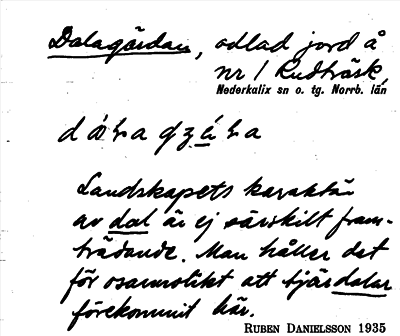 Dalagärdan, odlad jord å
nr 1 Rudträsk,
Nederkalix sn o. tg. Norrb. län
Landskapets karaktär
av dal är ej särskilt fram-
trädande. Man håller det
för osannolikt att tjärdalar
förekommit här.
RUBEN DANIELSSON 1935